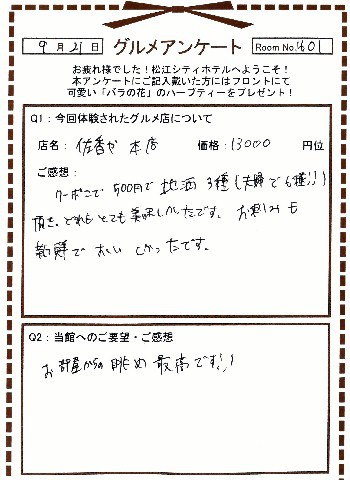 9月21日 グルメアンケート Room No.601
お疲れ様でした！松江シティホテルへようこそ！
本アンケートにご記入戴いた方にはフロントにて
可愛い「バラの花」のハーブティーをプレゼント！
Q1：今回体験されたグルメ店について
店名：佐香や 本店 価格：13000 円位
ご感想：
クーポンで 500円で 地酒 3種(夫婦で6種!!)
頂き、どれもとても美味しかったです。お刺身も
新鮮で おいしかったです。
Q2：当館へのご要望・ご感想
お部屋からの眺め 最高です!!